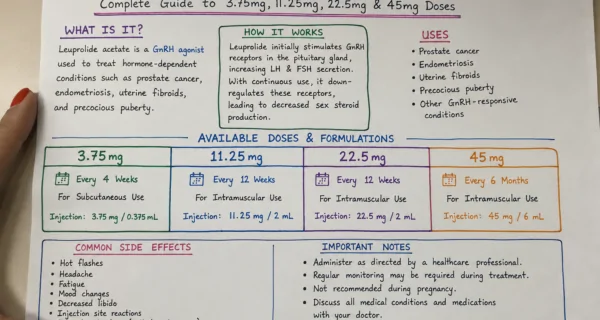 Complete Guide to 3.75mg, 11.25mg, 22.5mg & 45mg Doses
WHAT IS IT?
Leuprolide acetate is a GnRH agonist
used to treat hormone-dependent
conditions such as prostate cancer,
endometriosis, uterine fibroids,
and precocious puberty.
HOW IT WORKS
Leuprolide initially stimulates GnRH
receptors in the pituitary gland,
increasing LH & FSH secretion.
With continuous use, it down-
regulates these receptors,
leading to decreased sex steroid
production.
USES
• Prostate cancer
• Endometriosis
• Uterine fibroids
• Precocious puberty
• Other GnRH-responsive
conditions
AVAILABLE DOSES & FORMULATIONS
3.75 mg
Every 4 Weeks
For Subcutaneous Use
Injection: 3.75 mg / 0.375 mL
11.25 mg
Every 12 Weeks
For Intramuscular Use
Injection: 11.25 mg / 2 mL
22.5 mg
Every 12 Weeks
For Intramuscular Use
Injection: 22.5 mg / 2 mL
45 mg
Every 6 Months
For Intramuscular Use
Injection: 45 mg / 6 mL
COMMON SIDE EFFECTS
• Hot flashes
• Headache
• Fatigue
• Mood changes
• Decreased libido
• Injection site reactions
IMPORTANT NOTES
• Administer as directed by a healthcare professional.
• Regular monitoring may be required during treatment.
• Not recommended during pregnancy.
• Discuss all medical conditions and medications
with your doctor.